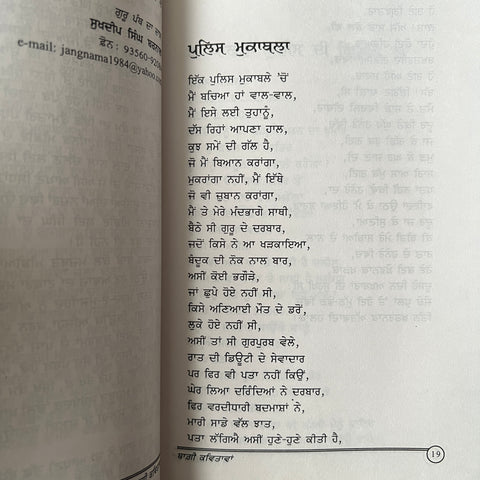 ਗੁਰੂ ਪੰਥ ਦਾ
ਸੁਖਦੀਪ ਸਿੰਘ
ਫ਼ੋਨ : 93560-
e-mail: jangnama1984@yahoo.co
ਪੁਲਿਸ ਮੁਕਾਬਲਾ
ਇੱਕ ਪੁਲਿਸ ਮੁਕਾਬਲੇ 'ਚੋਂ
ਮੈਂ ਬਚਿਆ ਹਾਂ ਵਾਲ-ਵਾਲ,
ਮੈਂ ਇਸੇ ਲਈ ਤੁਹਾਨੂੰ,
ਦੱਸ ਰਿਹਾਂ ਆਪਣਾ ਹਾਲ,
ਕੁਝ ਸਮੇਂ ਦੀ ਗੱਲ ਹੈ,
ਜੋ ਮੈਂ ਬਿਆਨ ਕਰਾਂਗਾ,
ਮੁਕਰਾਂਗਾ ਨਹੀਂ, ਮੈਂ ਇੱਥੇ
ਜੋ ਵੀ ਜ਼ੁਬਾਨ ਕਰਾਂਗਾ,
ਮੈਂ ਤੇ ਮੇਰੇ ਮੰਦਭਾਗੇ ਸਾਥੀ,
ਬੈਠੇ ਸੀ ਗੁਰੂ ਦੇ ਦਰਬਾਰ,
ਜਦੋਂ ਕਿਸੇ ਨੇ ਆ ਖੜਕਾਇਆ,
ਬੰਦੂਕ ਦੀ ਨੋਕ ਨਾਲ ਬਾਰ,
ਅਸੀਂ ਕੋਈ ਭਗੌੜੇ,
ਜਾਂ ਛੁਪੇ ਹੋਏ ਨਹੀਂ ਸੀ,
ਕਿਸੇ ਅਣਿਆਈ ਮੌਤ ਦੇ ਡਰੋਂ,
ਲੁਕੇ ਹੋਏ ਨਹੀਂ ਸੀ,
ਅਸੀਂ ਤਾਂ ਸੀ ਗੁਰਪੁਰਬ ਵੇਲੇ,
ਰਾਤ ਦੀ ਡਿਊਟੀ ਦੇ ਸੇਵਾਦਾਰ
ਪਰ ਫਿਰ ਵੀ ਪਤਾ ਨਹੀਂ ਕਿਉਂ,
ਘੇਰ ਲਿਆ ਦਰਿੰਦਿਆਂ ਨੇ ਦਰਬਾਰ,
ਫਿਰ ਵਰਦੀਧਾਰੀ ਬਦਮਾਸ਼ਾਂ ਨੇ,
ਮਾਰੀ ਸਾਡੇ ਵੱਲ ਝਾਤ,
ਪਤਾ ਲੱਗਿਐ ਅਸੀਂ ਹੁਣੇ-ਹੁਣੇ ਕੀਤੀ ਹੈ,
ਬਾਗ਼ੀ ਕਵਿਤਾਵਾਂ
19